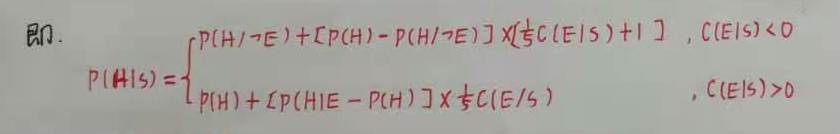 即.
P(H/¬E)+[P(H)-P(H/¬E)]×[⅕C(E|S)+1] , C(E|S)<0
P(H|S)={
P(H)+[P(H|E-P(H)]×⅕C(E/S) , C(E|S)>0